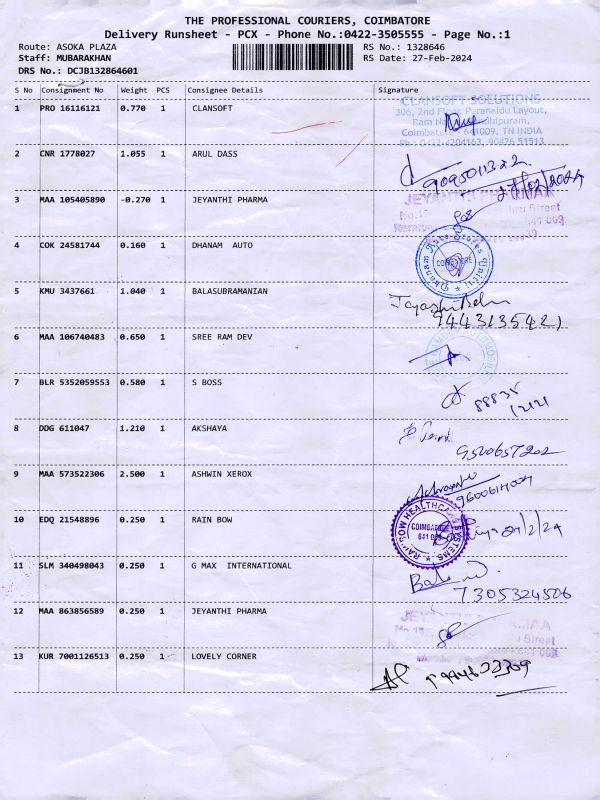 THE PROFESSIONAL COURIERS, COIMBATORE
Delivery Runsheet - PCX - Phone No.:0422-3505555 - Page No.:1
Route: ASOKA PLAZA
RS No.: 1328646
Staff: MUBARAKHAN
RS Date: 27-Feb-2024
DRS No.: DCJB132864601
S No Consignment No Weight PCS Consignee Details Signature
1 PRO 16116121 0.770 1 CLANSOFT
CLANSOFT SOLUTIONS
306, 2nd Floor, Layout,
Ram
Coimbatore 641009, TN INDIA
Ph : 0422-4204163, 90476 51513
2 CNR 1778027 1.055 1 ARUL DASS
9095011322
27/02/2024
3 MAA 105405890 -0.270 1 JEYANTHI PHARMA
JEYANTHI
Street
4 COK 24581744 0.160 1 DHANAM AUTO
Dhanam Auto Stores
COIMBATORE
5 KMU 3437661 1.040 1 BALASUBRAMANIAN
9443135421
6 MAA 106740483 0.650 1 SREE RAM DEV
7 BLR 5352059553 0.580 1 S BOSS
88835
12121
8 DDG 611047 1.210 1 AKSHAYA
9500657202
9 MAA 573522306 2.500 1 ASHWIN XEROX
10 EDQ 21548896 0.250 1 RAIN BOW
RAINBOW HEALTHCARE SYSTEMS
COIMBATORE
27/2/24
11 SLM 340498043 0.250 1 G MAX INTERNATIONAL
7305324506
12 MAA 863856589 0.250 1 JEYANTHI PHARMA
Street
13 KUR 7001126513 0.250 1 LOVELY CORNER